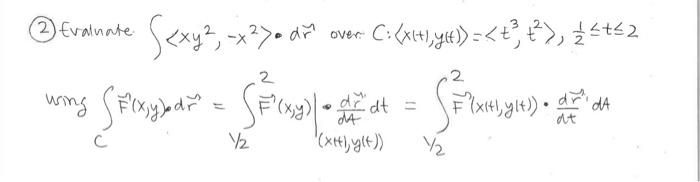 ② Evaluate ∫<xy², -x²>• dr⃗ over C: <x(t), y(t)> = <t³, t²>, ½ ≤ t ≤ 2
using ∫_C F⃗(x,y)•dr⃗ = ∫_{1/2}^{2} F⃗(x,y)|_{(x(t), y(t))} • dr⃗/dt dt = ∫_{1/2}^{2} F⃗(x(t), y(t)) • dr⃗/dt dt